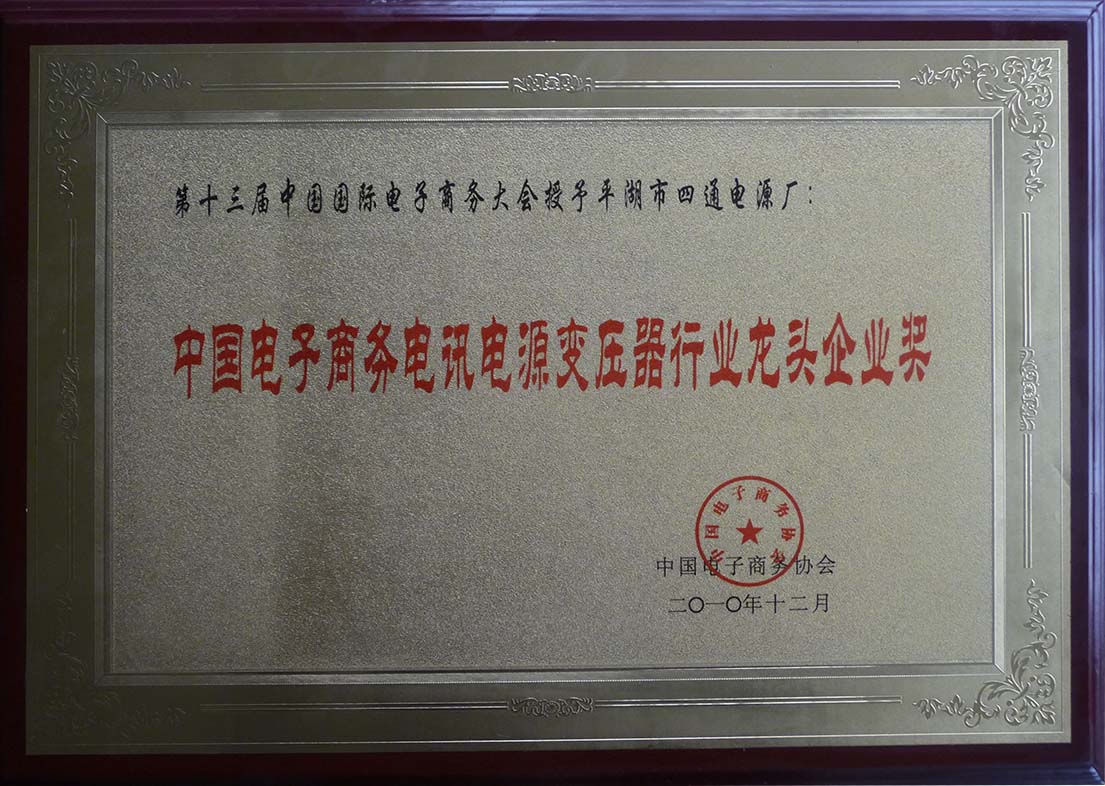 第十三届中国国际电子商务大会授予平湖市四通电源厂：
中国电子商务电讯电源变压器行业龙头企业奖
中国电子商务协会
中国电子商务协会
二〇一〇年十二月